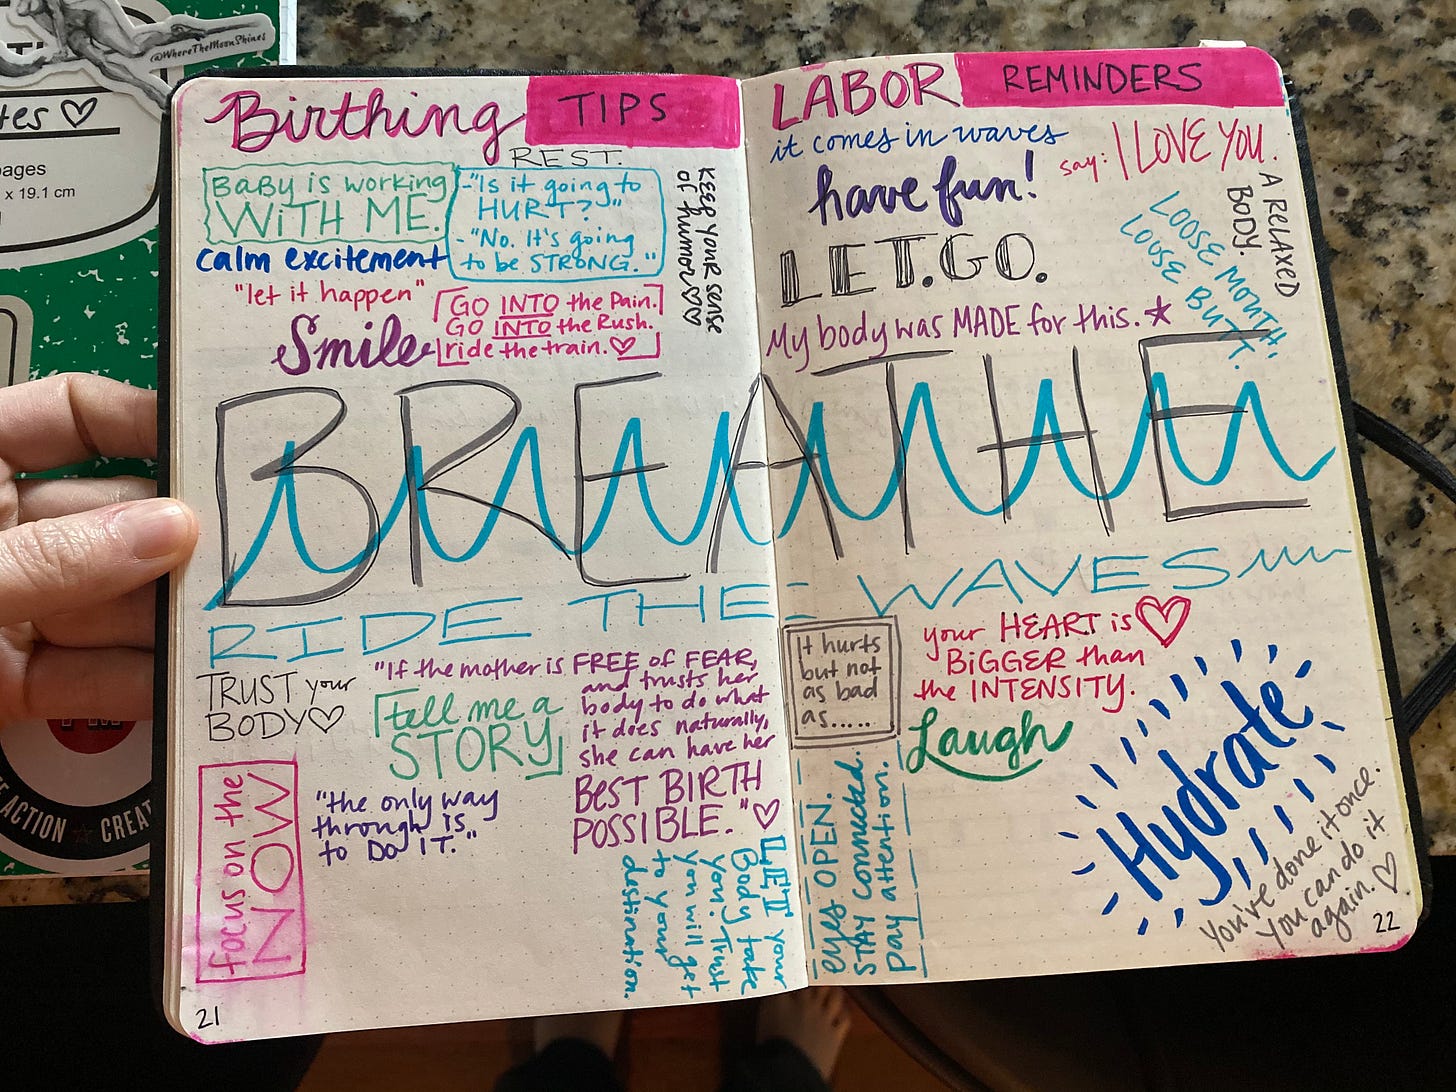 @WhereTheMoonShines
tes ♡
ages
x 19.1 cm
E ACTION ★ CREAT
Birthing TIPS
REST.
BABY is working
WITH ME.
calm excitement
"let it happen"
Smile
-"Is it going to
HURT?"
-"No. It's going
to be STRONG."
KEEP your sense
of humor ♡♡
[GO INTO the Pain.
GO INTO the Rush.
ride the train. ♡]
BREATHE
RIDE THE WAVES
TRUST your
BODY ♡
[tell me a
STORY]
"If the mother is FREE of FEAR,
and trusts her
body to do what
it does naturally,
she can have her
BEST BIRTH
POSSIBLE." ♡
focus on the
NOW
"the only way
through is
to DO IT."
LET your
Body take
you. Trust
you will get
to your
destination.
21
LABOR REMINDERS
it comes in waves
have fun!
say: I LOVE YOU.
A RELAXED
BODY.
LOOSE MOUTH.
LOOSE BUTT.
LET.GO.
My body was MADE for this. ★
It hurts
but not
as bad
as.....
your HEART is ♡
BIGGER than
the INTENSITY.
Laugh
Hydrate
eyes OPEN.
STAY connected.
Pay attention.
You've done it once.
You can do it
again. ♡
22